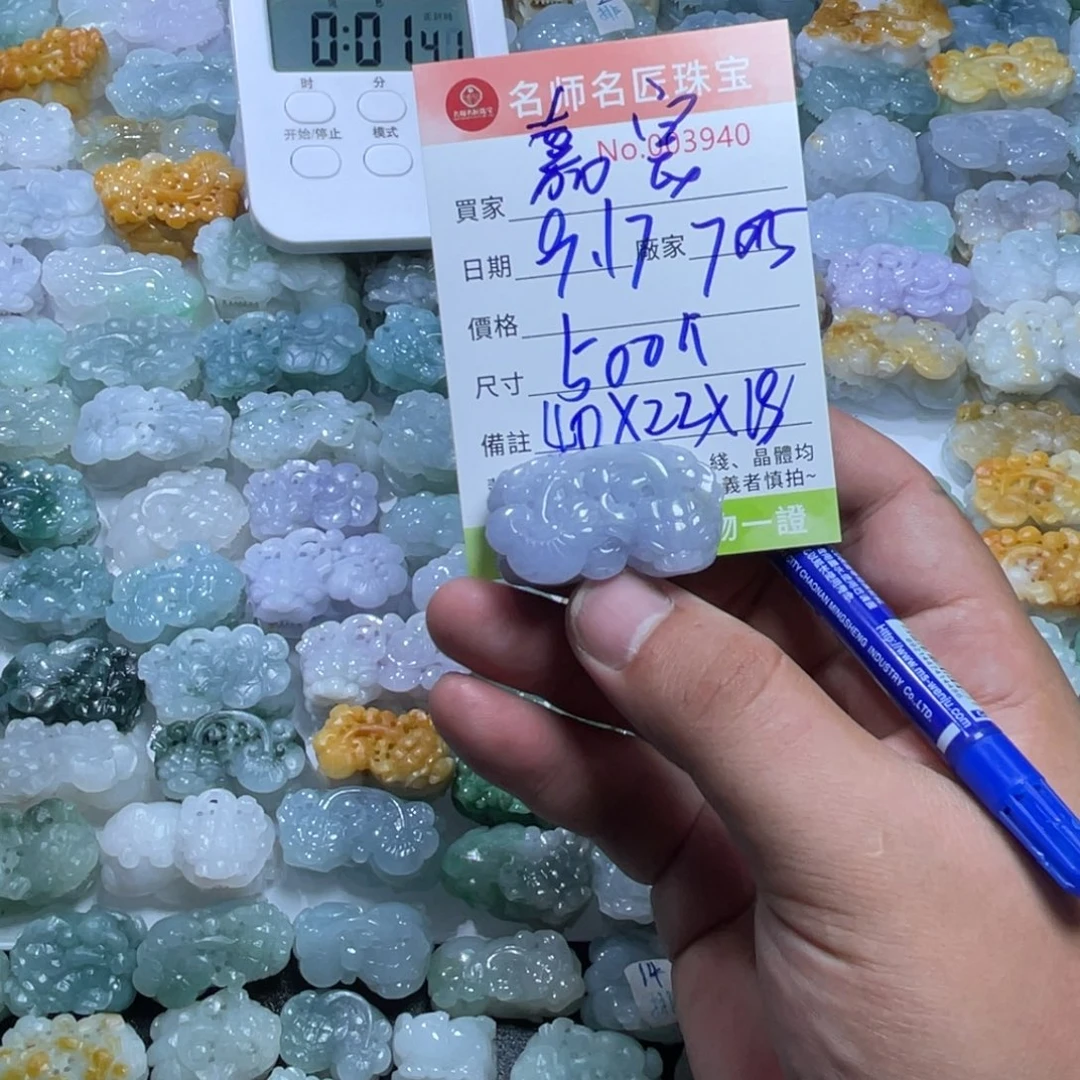 0:01 41
时 分
开始/停止 模式
名师名匠珠宝
No.003940
買家 嘉
日期 9.17 廠家 705
價格
尺寸 500
備註 40X22X18
綫、晶體均
義者慎拍~
物一證
CITY CHAONAN MINGSHENG INDUSTRY Co.,LTD.
Http://www.ms-wenju.com
14